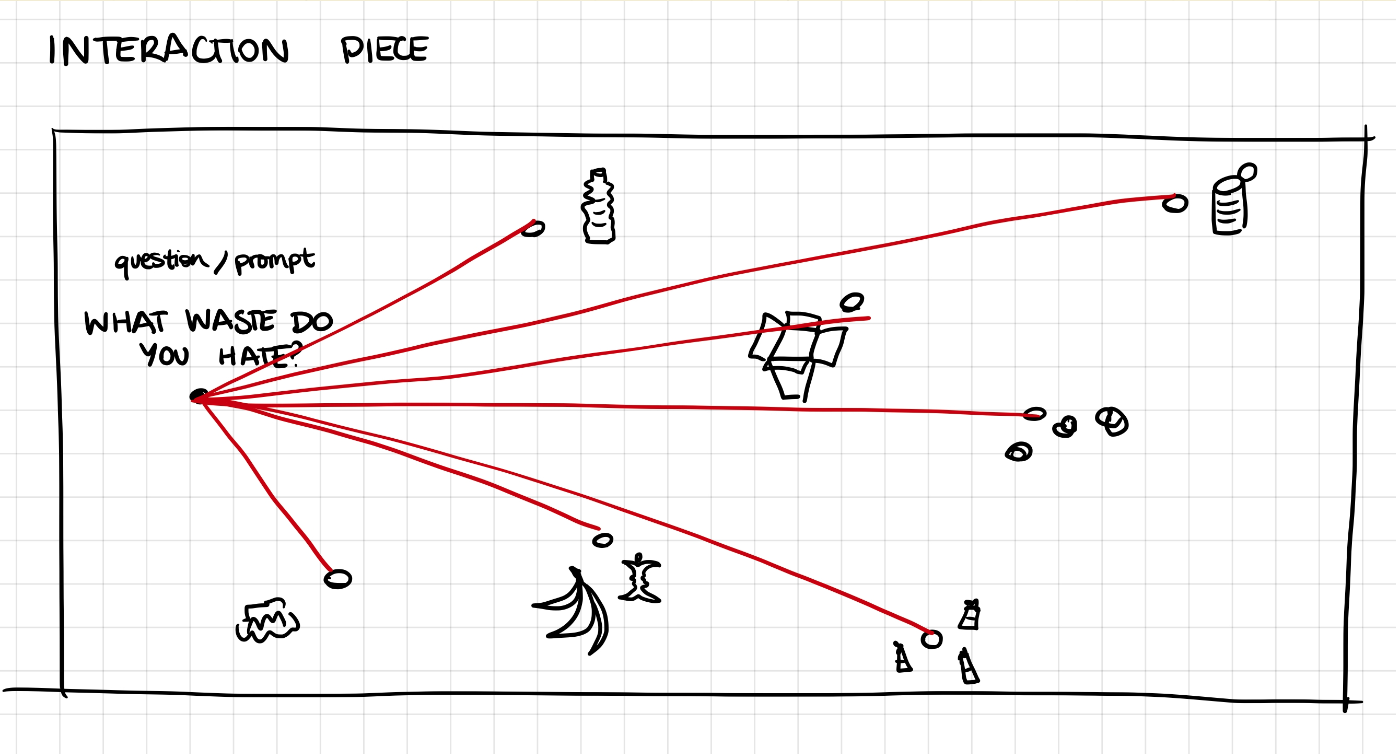 INTERACTION PIECE
question/prompt
WHAT WASTE DO
YOU HATE?